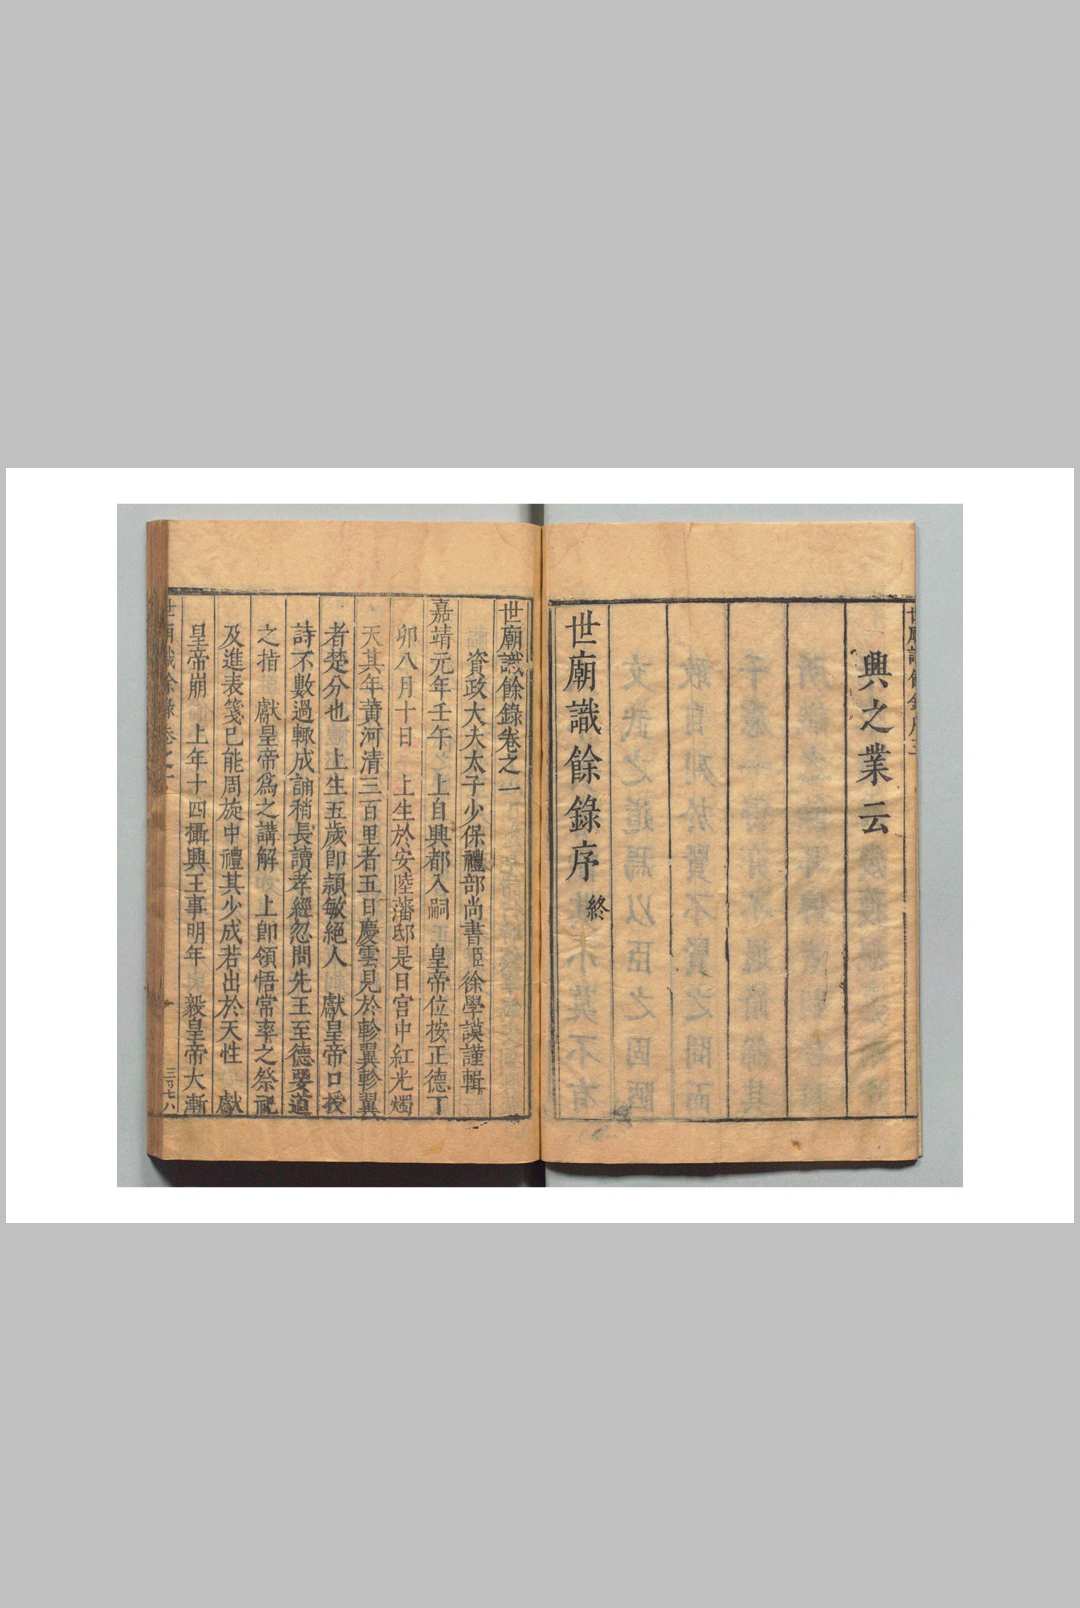 興之業云
世廟識餘錄序 終
世廟識餘錄卷之一
資政大夫太子少保禮部尚書臣徐學謨謹輯
嘉靖元年壬午 上自興都入嗣 皇帝位按正德丁
卯八月十日 上生於安陸藩邸是日宫中紅光燭
天其年黄河清三百里者五日慶雲見於軫翼軫翼
者楚分也 上生五歲即頴敏絕人 獻皇帝口授
詩不數過輙成誦稍長讀孝經忽問先王至德要道
之指 獻皇帝爲之講解 上即領悟常率之祭祀
及進表箋已能周旋中禮其少成若出於天性 獻
皇帝崩 上年十四攝興王事明年 毅皇帝大漸
世廟識餘錄 卷之一